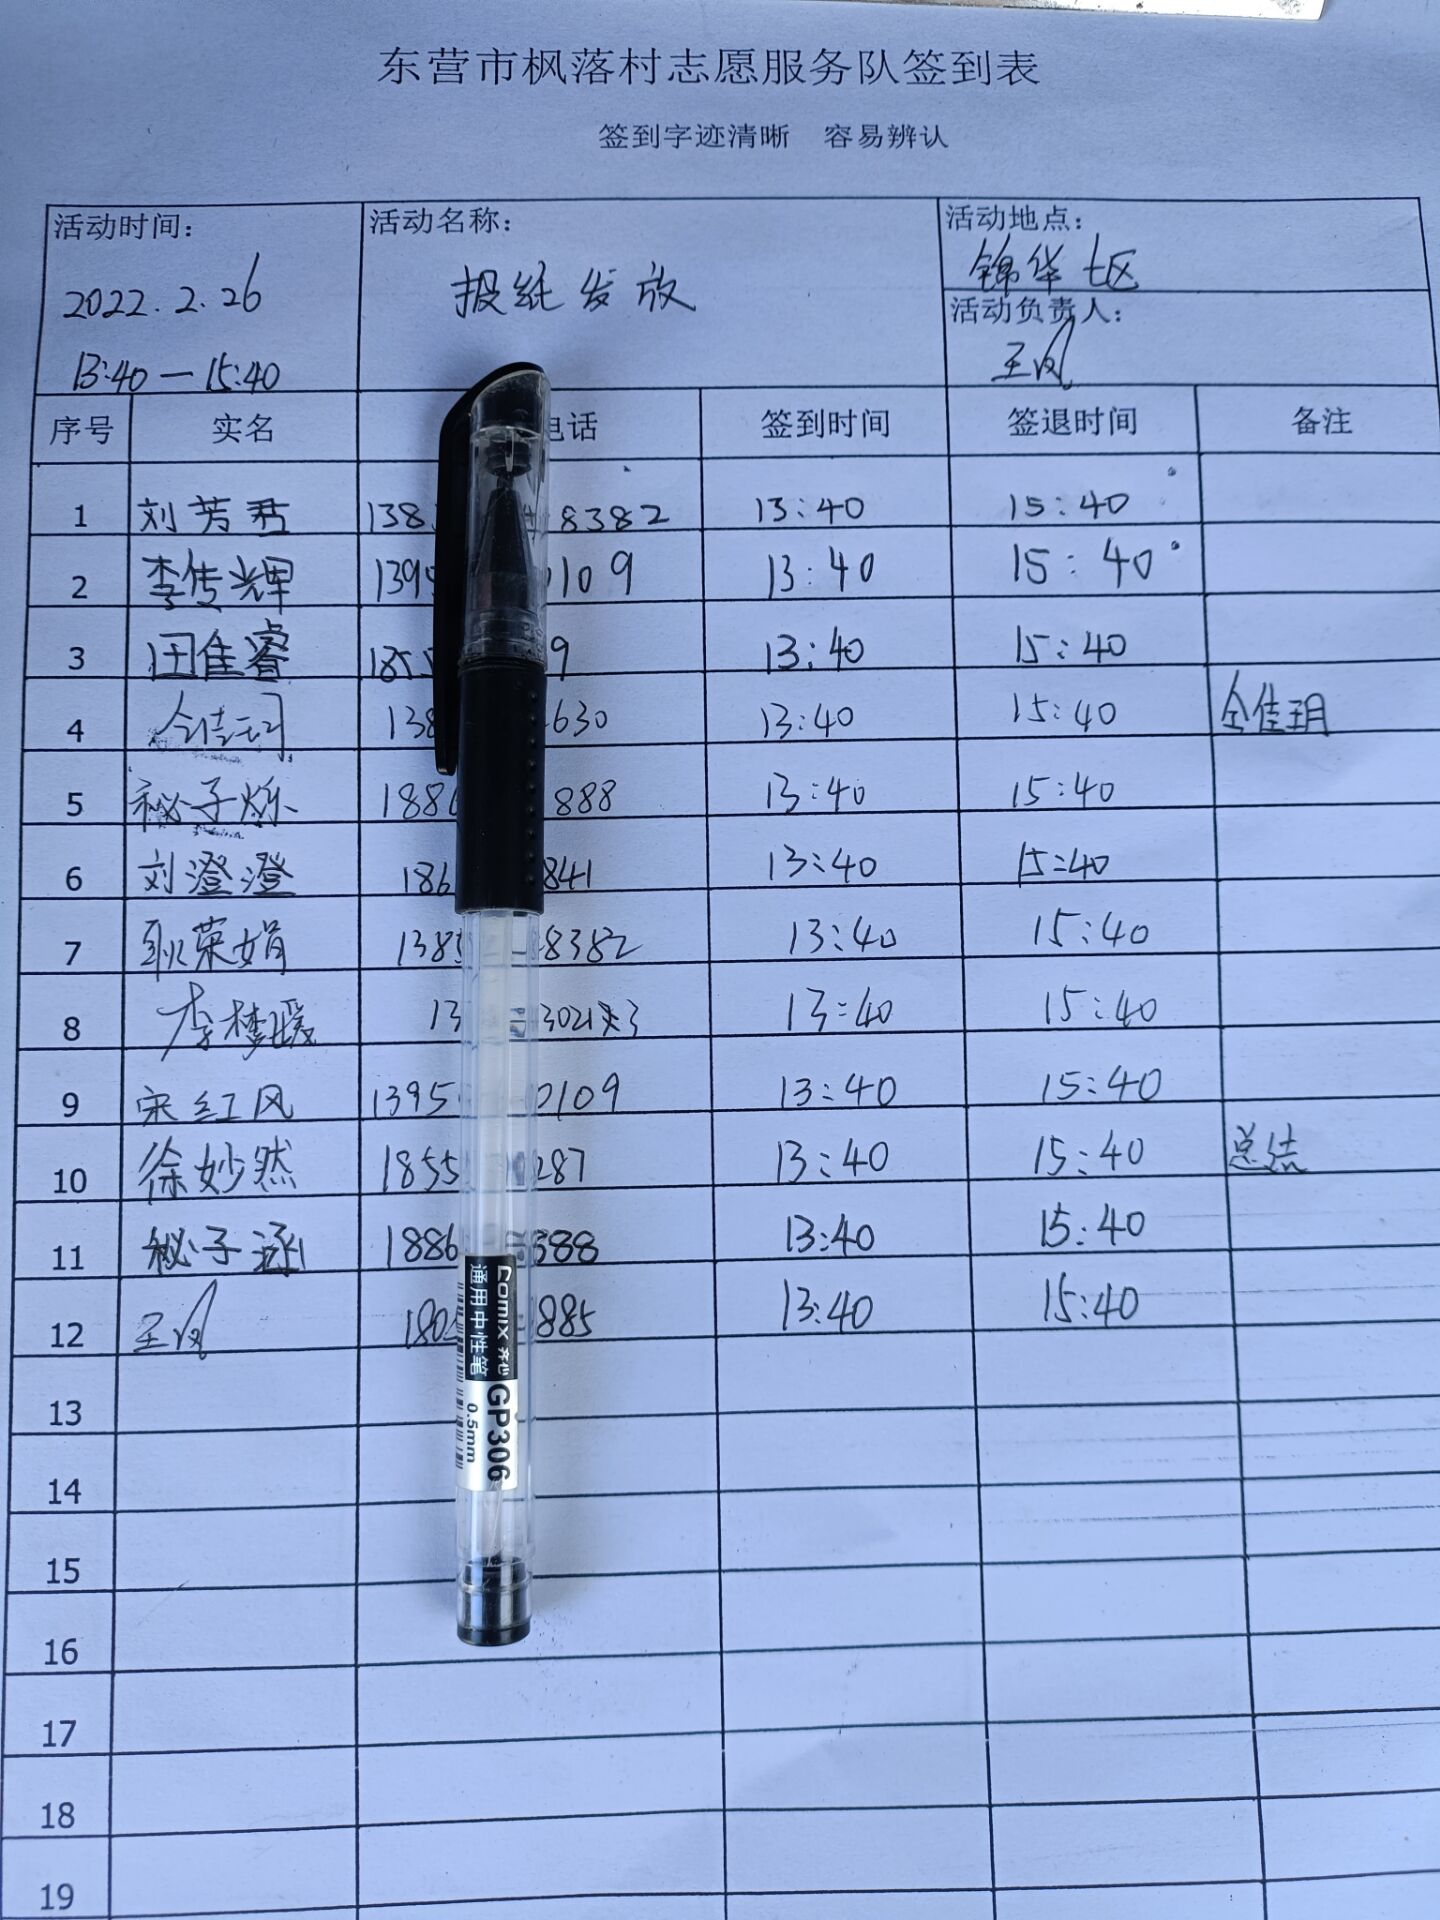 东营市枫落村志愿服务队签到表
签到字迹清晰 容易辨认
活动时间: 活动名称: 活动地点:
2022.2.26 报纸发放 锦华七区
13:40—15:40 活动负责人: 王凤
序号 实名 电话 签到时间 签退时间 备注
1 刘芳君 138 8382 13:40 15:40
2 李传辉 139 109 13:40 15:40
3 田佳睿 185 9 13:40 15:40
4 仝佳玥 138 630 13:40 15:40 仝佳玥
5 秘子烁 188 888 13:40 15:40
6 刘澄澄 186 841 13:40 15:40
7 耿荣娟 1385 8382 13:40 15:40
8 李梦媛 13 3021 3 13:40 15:40
9 宋红风 1395 0109 13:40 15:40
10 徐妙然 1855 287 13:40 15:40 总结
11 秘子涵 1886 888 13:40 15:40
12 王凤 180 885 13:40 15:40
13
14
15
16
17
18
19
comix 齐心 GP306
通用中性笔 0.5mm